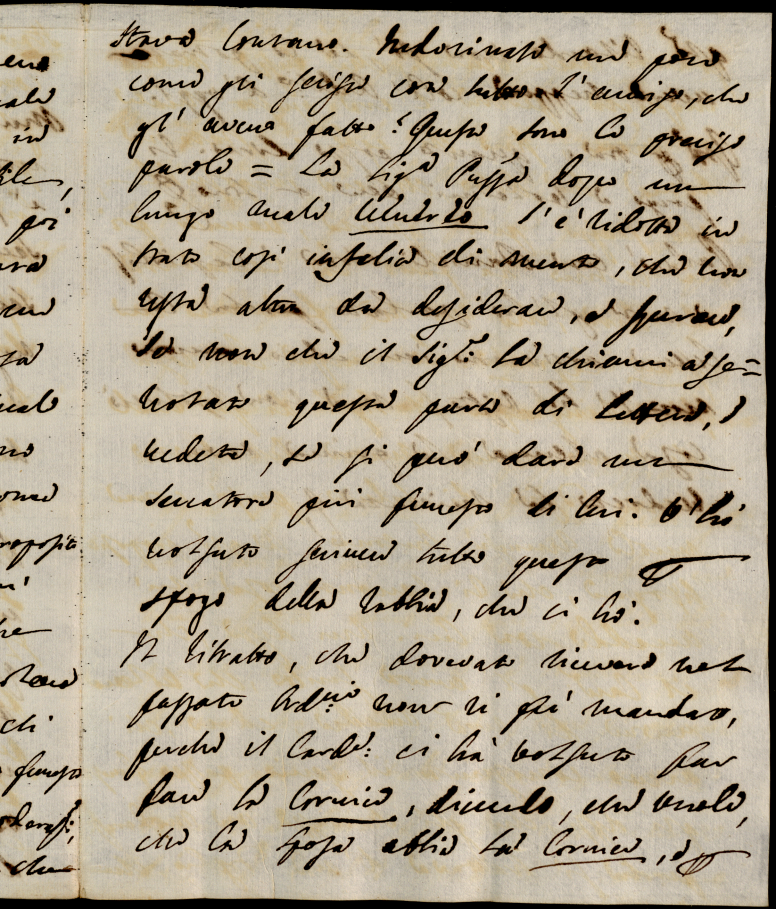 stava Lontano. Indovinate un poco
come gli scrisse con tutto l'amico, che
gl'aveva fatto? Queste sono le precise
parole = La Sig.ra Pussa dopo un
lungo male Venereo s'è ridotta in
stato così infelice di mente, che non
resta altro da desiderare, e sperare,
Se non che il Sig.re: La chiami a se=
Notate questa parte di Lettera, e
vedete, se si può dare un
seccatore più funesto di lui. V'hò
volsuto scrivere tutto questo p
sfogo della rabbia, che ci hò.
Il Ritratto, che dovevate ricevere nel
passato Ord.rio non vi fù mandato,
perche il Card.e: ci hà volsuto far
fare la Cornice, dicendo, che vuole,
che la sposa abbia la Cornice, e p
ene
ale
in
ile,
poi
ara
sa
uale
no
ome
roposito
he
di
funesto
che